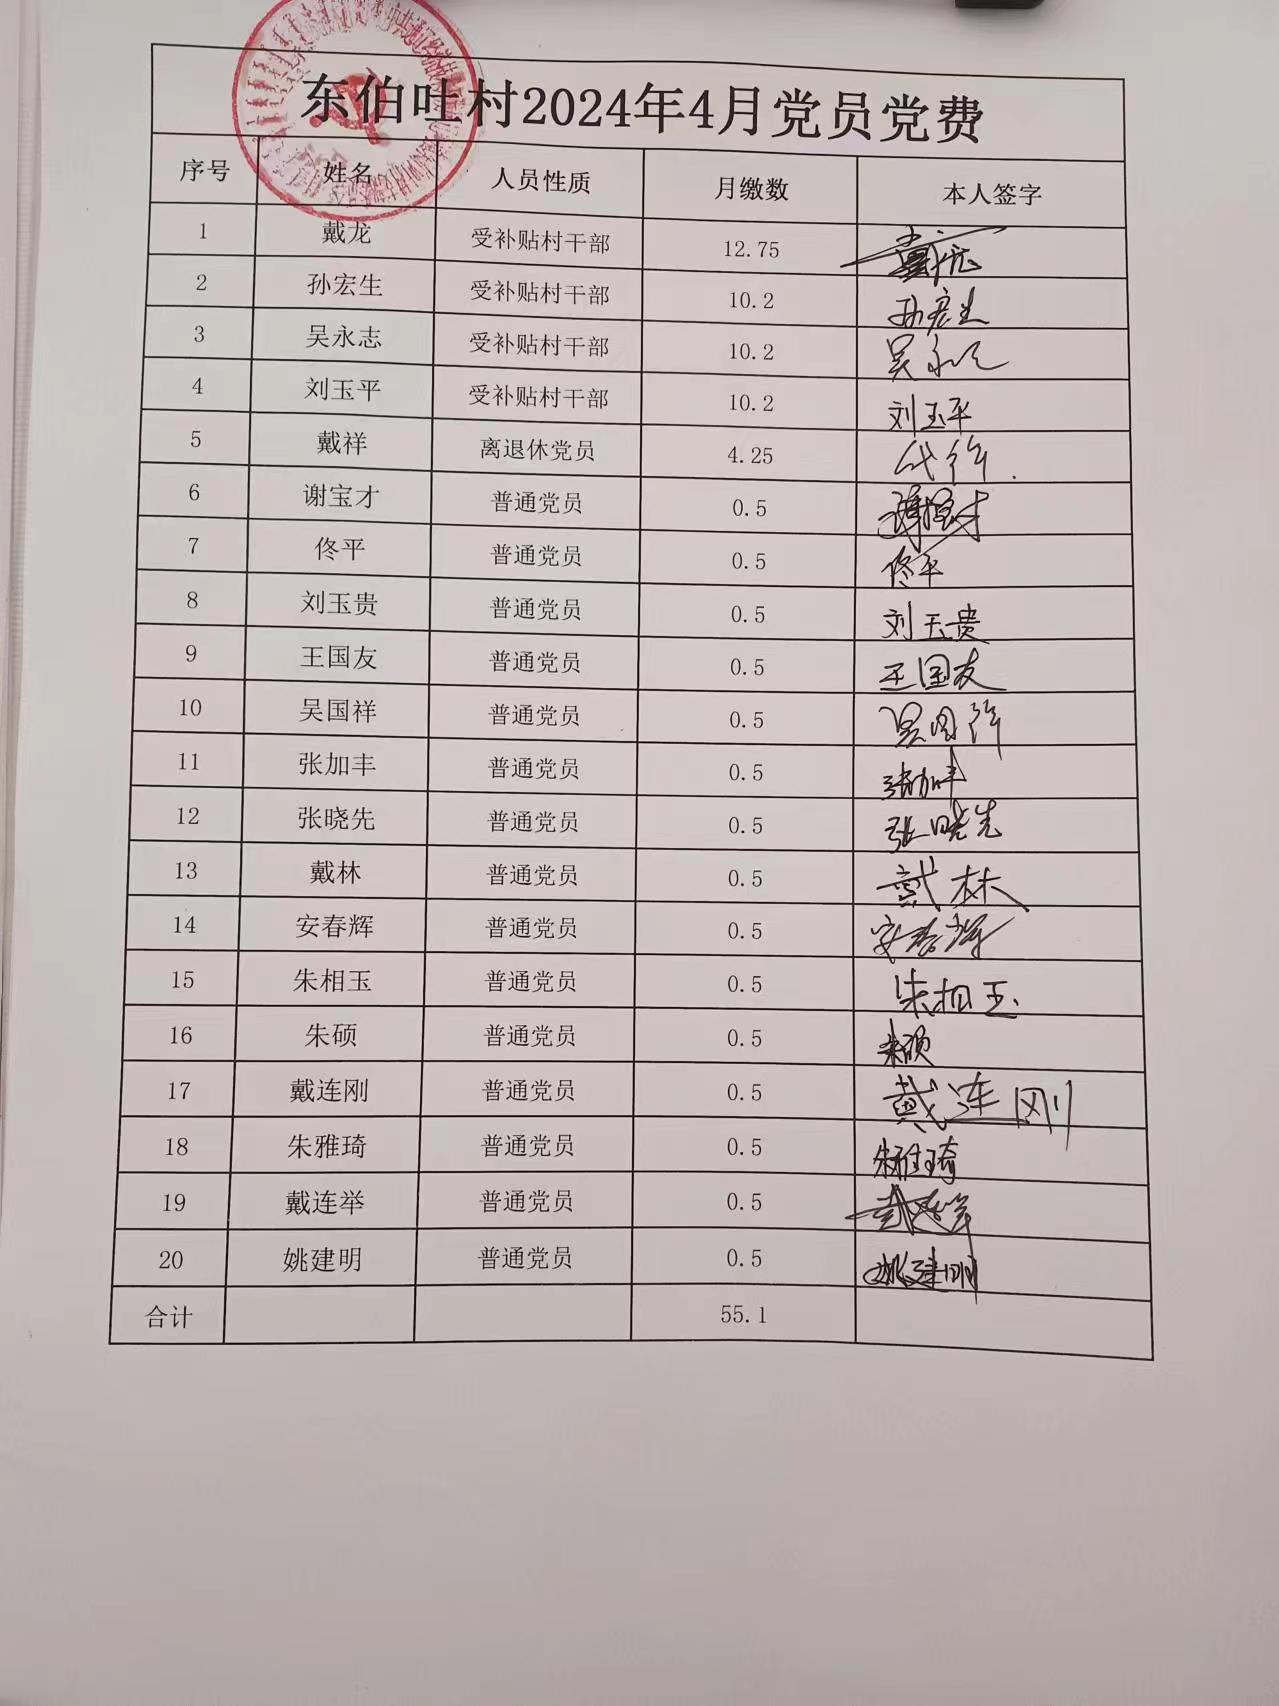 东伯吐村2024年4月党员党费
序号 姓名 人员性质 月缴数 本人签字
1 戴龙 受补贴村干部 12.75 戴龙
2 孙宏生 受补贴村干部 10.2 孙宏生
3 吴永志 受补贴村干部 10.2 吴永志
4 刘玉平 受补贴村干部 10.2 刘玉平
5 戴祥 离退休党员 4.25 代祥
6 谢宝才 普通党员 0.5 谢宝才
7 佟平 普通党员 0.5 佟平
8 刘玉贵 普通党员 0.5 刘玉贵
9 王国友 普通党员 0.5 王国友
10 吴国祥 普通党员 0.5 吴国祥
11 张加丰 普通党员 0.5 张加丰
12 张晓先 普通党员 0.5 张晓先
13 戴林 普通党员 0.5 戴林
14 安春辉 普通党员 0.5 安春辉
15 朱相玉 普通党员 0.5 朱相玉
16 朱硕 普通党员 0.5 朱硕
17 戴连刚 普通党员 0.5 戴连刚
18 朱雅琦 普通党员 0.5 朱雅琦
19 戴连举 普通党员 0.5 戴连举
20 姚建明 普通党员 0.5 姚建明
合计 55.1